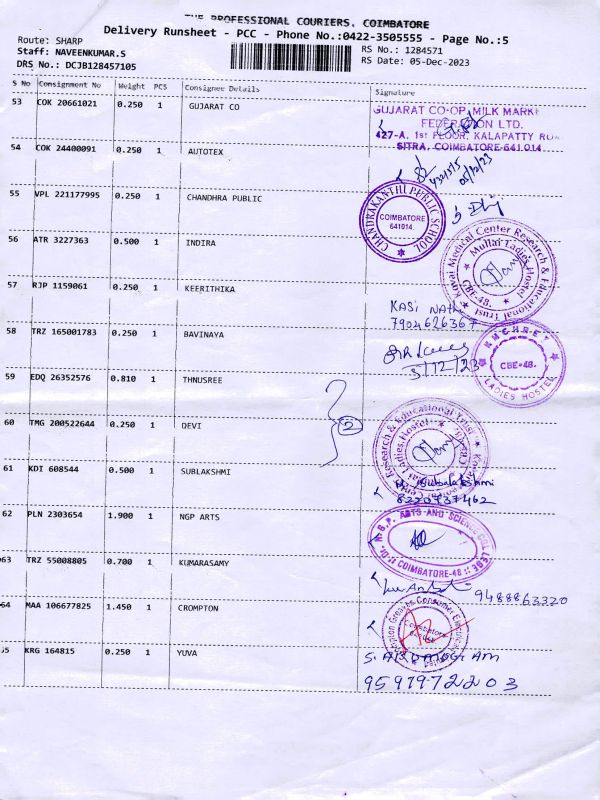 THE PROFESSIONAL COURIERS, COIMBATORE
Delivery Runsheet - PCC - Phone No.:0422-3505555 - Page No.:5
Route: SHARP
Staff: NAVEENKUMAR.S
DRS No.: DCJB128457105
RS No.: 1284571
RS Date: 05-Dec-2023
S No Consignment No Weight PCS Consignee Details Signature
53 COK 20661021 0.250 1 GUJARAT CO
GUJARAT CO-OP. MILK MARK
FEDERATION LTD.
427-A, 1st FLOOR, KALAPATTY RO
SITRA, COIMBATORE-641 014.
54 COK 24400091 0.250 1 AUTOTEX
05/12/23
55 VPL 221177995 0.250 1 CHANDHRA PUBLIC
CHANDRAKANTHI PUBLIC SCHOOL
COIMBATORE
641014.
56 ATR 3227363 0.500 1 INDIRA
Kovai Medical Center Research & Educational Trust
Mullai Ladies Hostel
CBE-48.
57 RJP 1159061 0.250 1 KEERITHIKA
KASI Nath
7904626367
58 TRZ 165001783 0.250 1 BAVINAYA
5/12/23
KMCHRET
CBE-48.
LADIES HOSTEL
59 EDQ 26352576 0.810 1 THNUSREE
2
60 TMG 200522644 0.250 1 DEVI
Research & Educational Trust
Ladies Hostel
61 KDI 608544 0.500 1 SUBLAKSHMI
8220737462
62 PLN 2303654 1.900 1 NGP ARTS
Dr. N.G.P. ARTS AND SCIENCE COLLEGE
COIMBATORE-48
63 TRZ 55008805 0.700 1 KUMARASAMY
9488863320
64 MAA 106677825 1.450 1 CROMPTON
Crompton Greaves Consumer Electricals
Coimbatore
55 KRG 164815 0.250 1 YUVA
9597972203